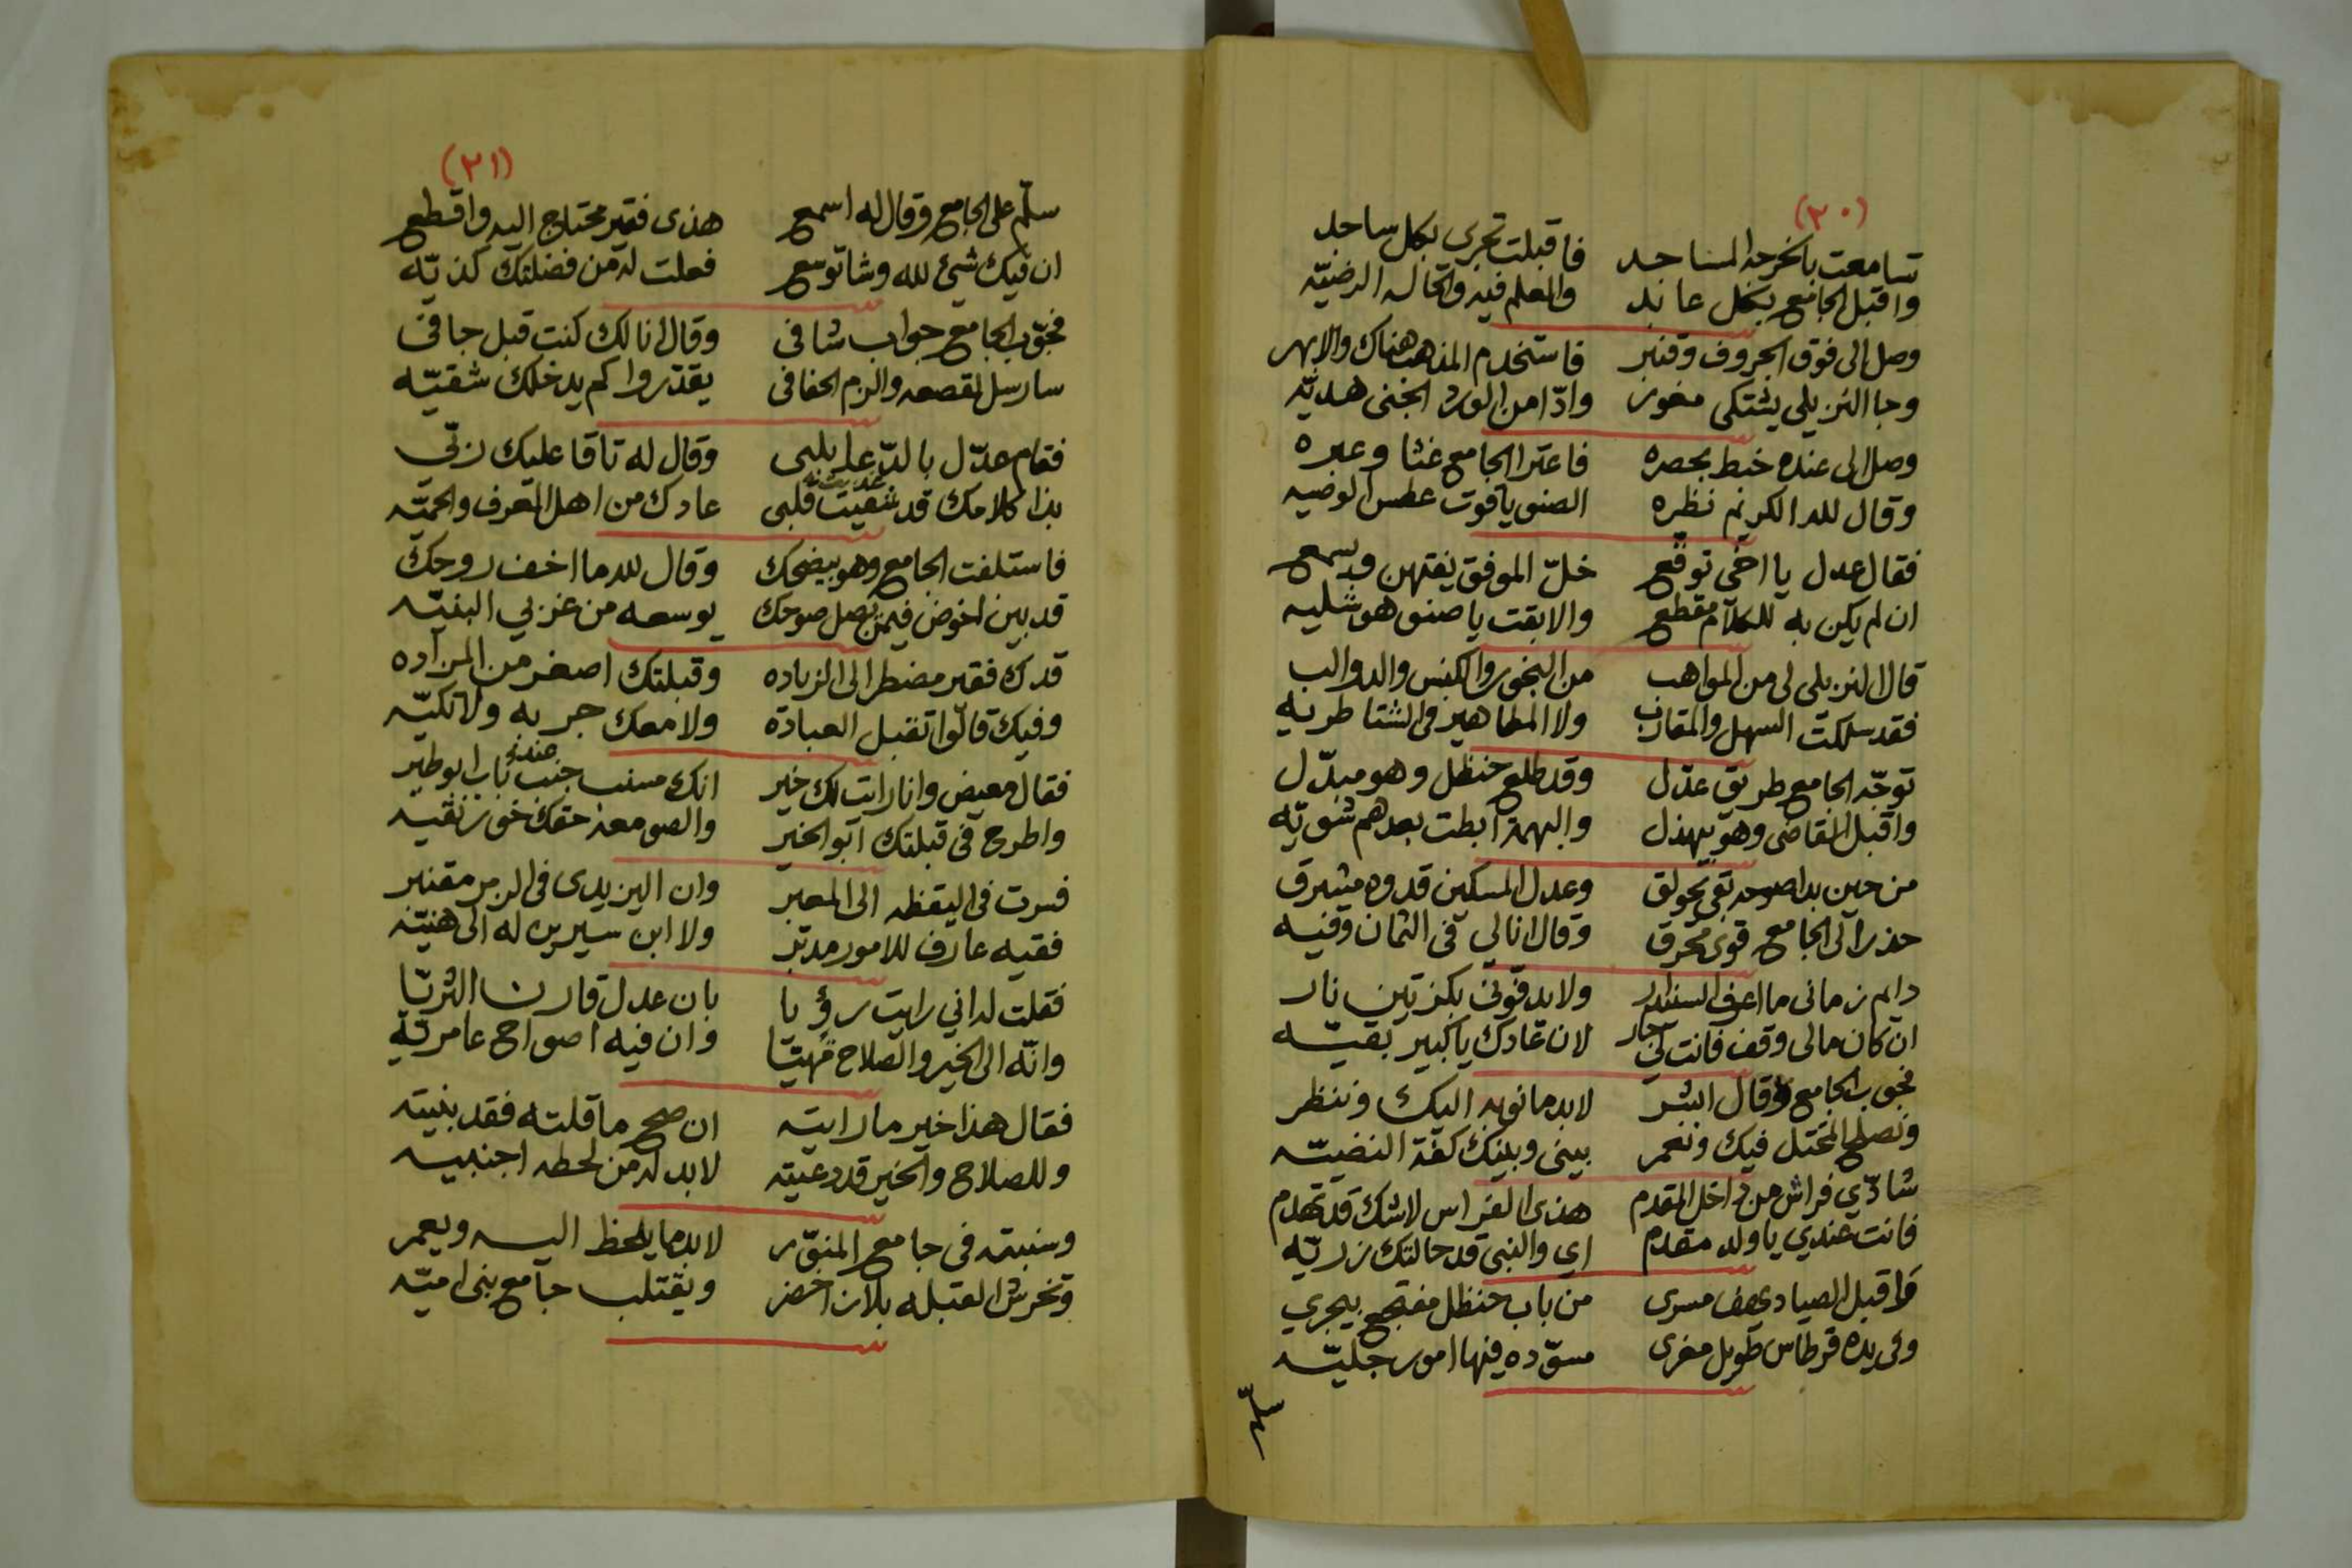 (٢٠)
تسامعت بالخرجه المساجد فاقبلت تجري بكل ساجد
واقبل الجامع بكل عابد والعلم فيه والحاله الرضيّه
وصل الى فوق الجروف وقنبر فاستخدم المذهب هناك والابهر
وجا النزيلي يشتكي مغور وادّا من الورد الجنني هديّه
وصل الى عنده خبط بحصره فاعترا الجامع غثا وعبره
وقال لله الكريم نظره الصنو ياقوت عطس الوضيه
فقال عدل يا اخي توقع خلّ الموفق يفتهن ويسمع
ان لم يكن به للكلام مقطع والابقت يا صنو هو شليه
قال النزيلي لي من المواهب من البخور والكبس والدوالب
فقد سلكت السهل والمقارب ولا المطاهير في الشتا طريه
توجّه الجامع طريق عدّل وقد طلع حنظل وهو مبدّل
واقبل القاضي وهو يهذل والبهمة ابطت بعدهم شويّه
من حين بدا صوحه بقي يحولق وعدل المسكين قدوه مشرق
حذر الى الجامع قوي محرق وقال انا لي في الثمان وفيه
دايم زماني ما اعرف السنداد ولا بد قوني بكزتين نار
ان كان مالي وقف فانت لي جار لان عادك يا كبير بقيّه
فجوب الجامع وقال ابشر لا بد ما نوبه اليك وننظر
ونصلح المختل فيك ونعمر بيني وبينك كفة النضيّه
شادّي فراش من داخل المقدم هذي الفراس لا شك قد تهدم
فانت عندي يا ولد مقدم اي والنبي قد حالتك زريّه
واقبل الصيادي مسرى من باب حنظل مفتجع بيجري
وفي يده قرطاس طويل مغري مسوّده فيها امور جليّه
سلّم
(٢١)
سلّم على الجامع وقال له اسمع هذي فقير محتاج اليه واقطع
ان فيك شيئ لله وشا توسع فعلت له من فضلتك كذيّه
فجوّب الجامع جواب شافي وقال انا لك كنت قبل جافي
سارسل لقصعه والزم الحفافي يقذروا كم يدخلك شقيّه
فقام عدّل بالدّعا يلبي وقال له تاقا عليك ربّي
بذا كلامك قد شفيت قلبي عادك من اهل المعرف والحميّه
فاستلفت الجامع وهو بيضحك وقال لله ما اخف روحك
قد بين اخوض فيمن يصل صوحك يوسعه من غربي البنيّه
قدك فقير مضطر الى الزياده وقبلتك اصغر من المراده
وفيك قالوا تقبل العباده ولا معك جربه ولا تكيّه
فقال معيض وانا رايت لك خير انك مسنب جنب باب ابو طير
واطرح في قبلتك ابو الخير والصومعه حقك خور نقيه
فسرت في اليقظه الى المعبر وان اليزيدي في الربر مقنبر
فقيه عارف للامور مدبّر ولا ابن سيرين له الى هنيّه
فقلت له اني رايت رؤيا بان عدل قارن الثريّا
وانّه الى الخير والصلاح مُهيّا وان فيه اصواح عامريّه
فقال هذا خير ما رايته ان صح ما قلته فقد بنيته
وللصلاح والخير قد دعيته لا بد له من لحظه اجنبيه
وسنبته في جامع المنوّر لا بد ما يلحظ اليه ويعمر
وتخرش القبله بلان اخضر ويقتلب جامع بني اميّه